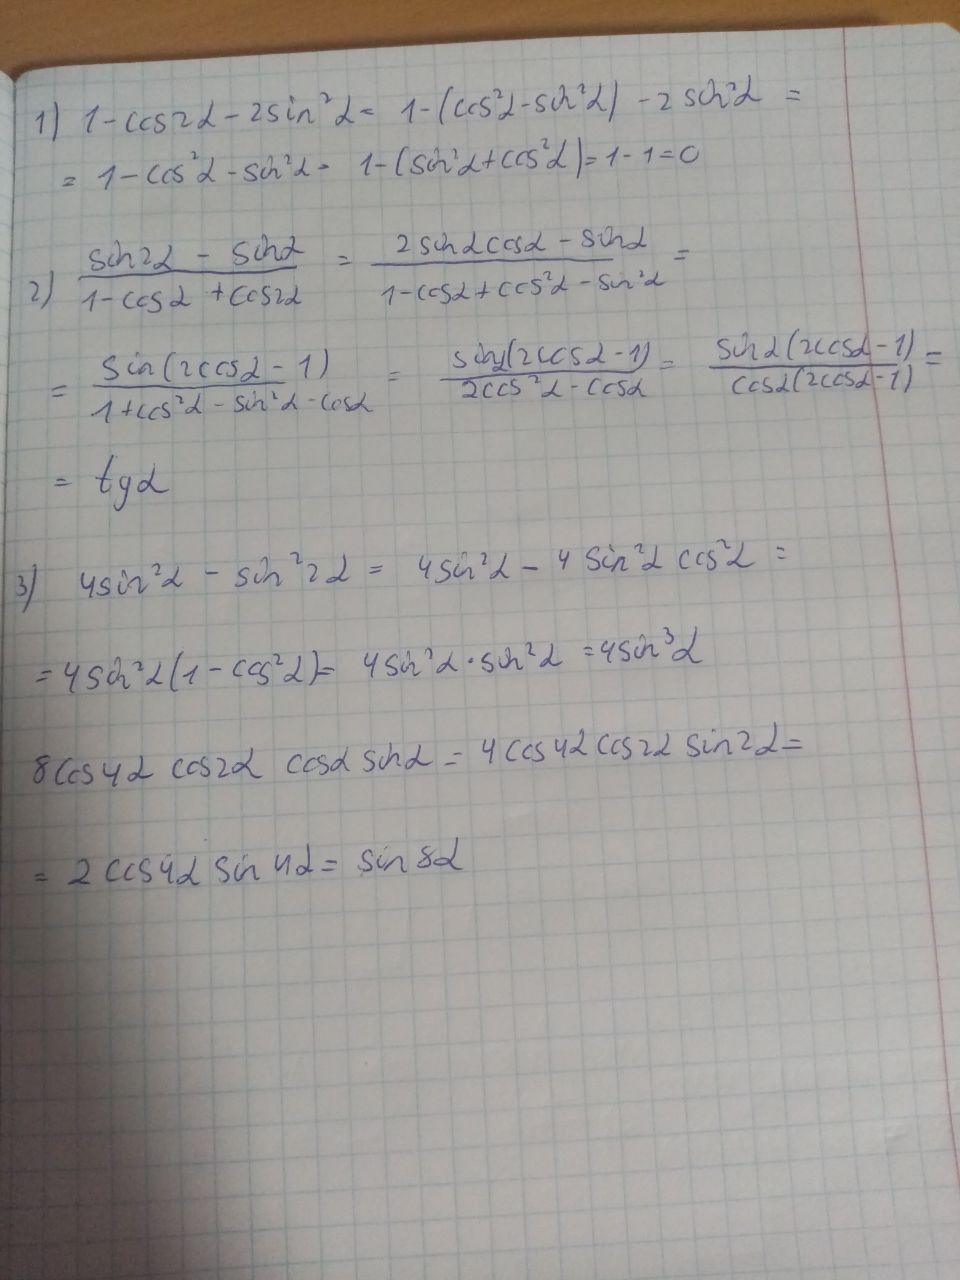 1) 1-cos2α-2sin²α= 1-(cos²α-sin²α) -2sin²α =
= 1-cos²α-sin²α= 1-(sin²α+cos²α)=1-1=0
2) (sin2α - sinα)/(1-cosα+cos2α) = (2sinαcosα-sinα)/(1-cosα+cos²α-sin²α) =
= (sin(2cosα-1))/(1+cos²α-sin²α-cosα) = (sinα(2cosα-1))/(2cos²α-cosα) = (sinα(2cosα-1))/(cosα(2cosα-1)) =
= tgα
3) 4sin²α - sin²2α = 4sin²α-4sin²α cos²α =
=4sin²α(1-cos²α)= 4sin²α·sin²α =4sin³α
8cos4α cos2α cosα sinα = 4cos4αcos2α sin2α=
= 2cos4α sin4α= sin8α